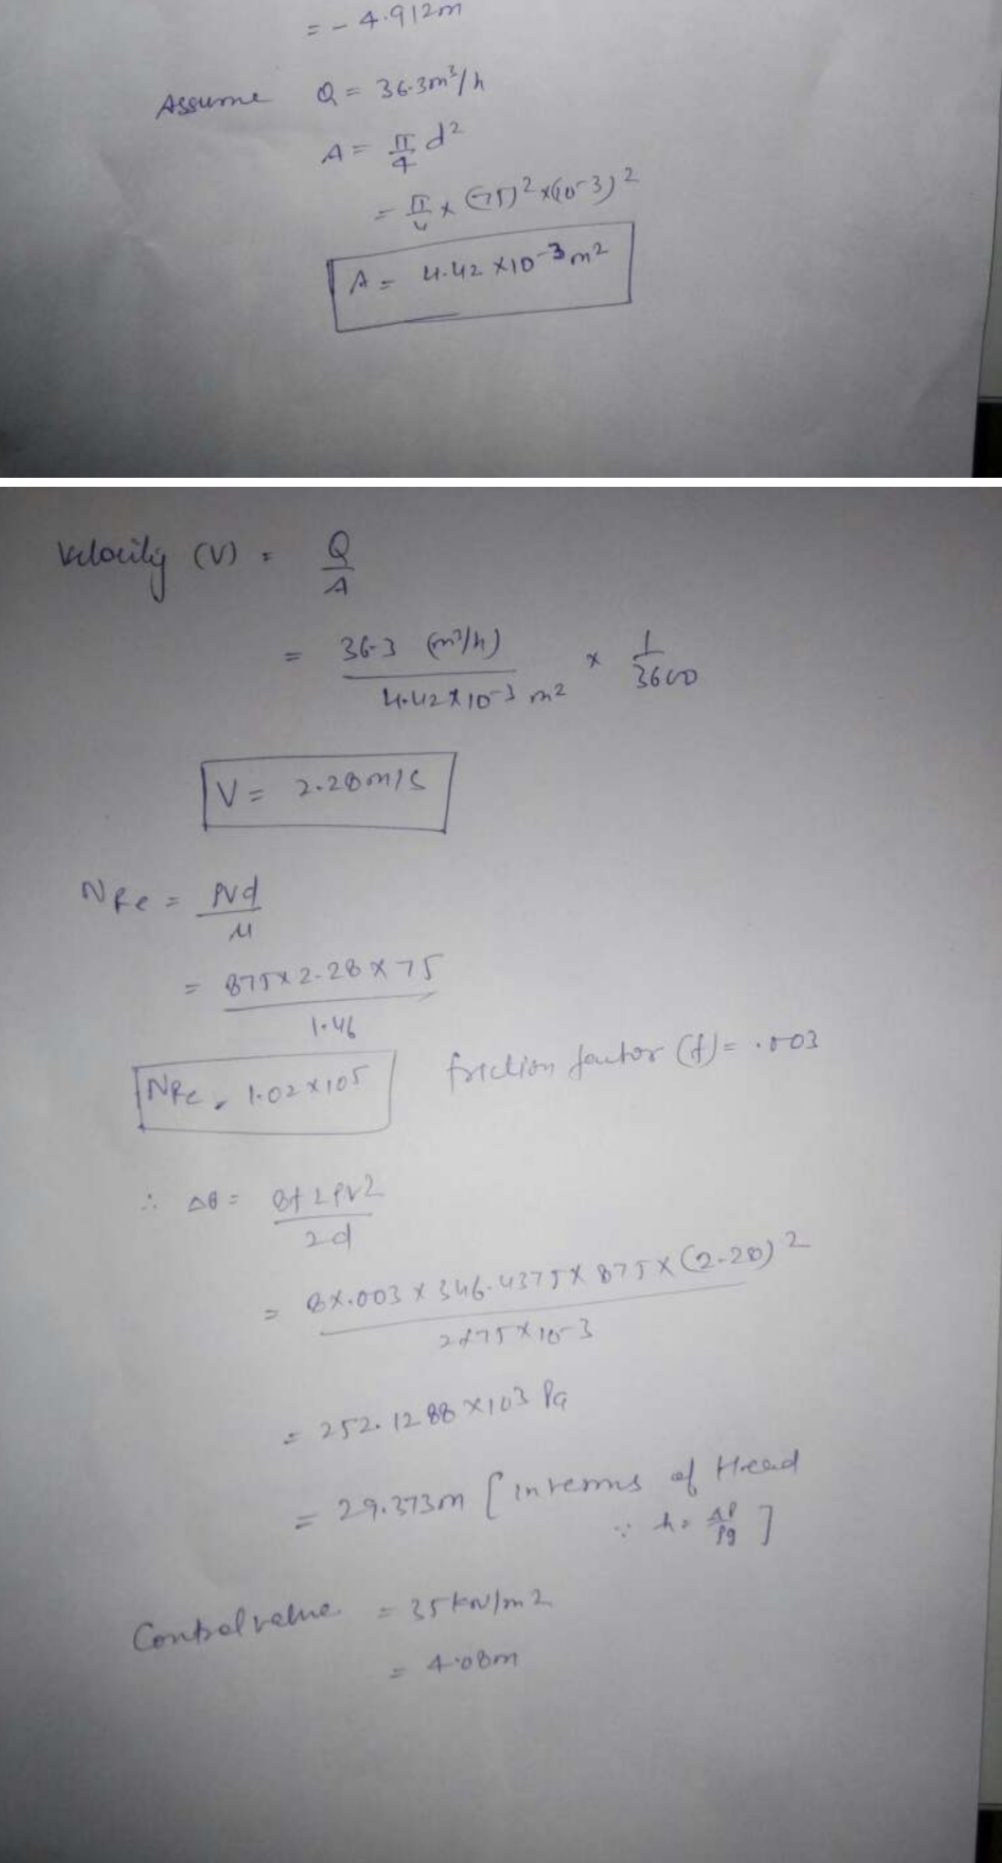 = - 4.912m
Assume Q = 36.3m³/h
A = π/4 d²
= π/4 × (75)² × (10-3)²
A = 4.42 × 10-3 m²
Velocity (V) = Q/A
= 36.3 (m³/h) / 4.42 × 10-3 m² × 1/3600
V = 2.28 m/s
NRe = ρvd/μ
= 875 × 2.28 × 75 / 1.46
NRe = 1.02 × 105 friction factor (f) = .003
∴ = 8f Lρv2 / 2d
= 8×.003 × 346.4375 × 875 × (2.28)² / 2×75 × 10-3
= 252.1288 × 103 Pa
= 29.373m [in terms of Head
∵ h = ΔP/ρg ]
Control valve = 35 kN/m2
= 4.08m